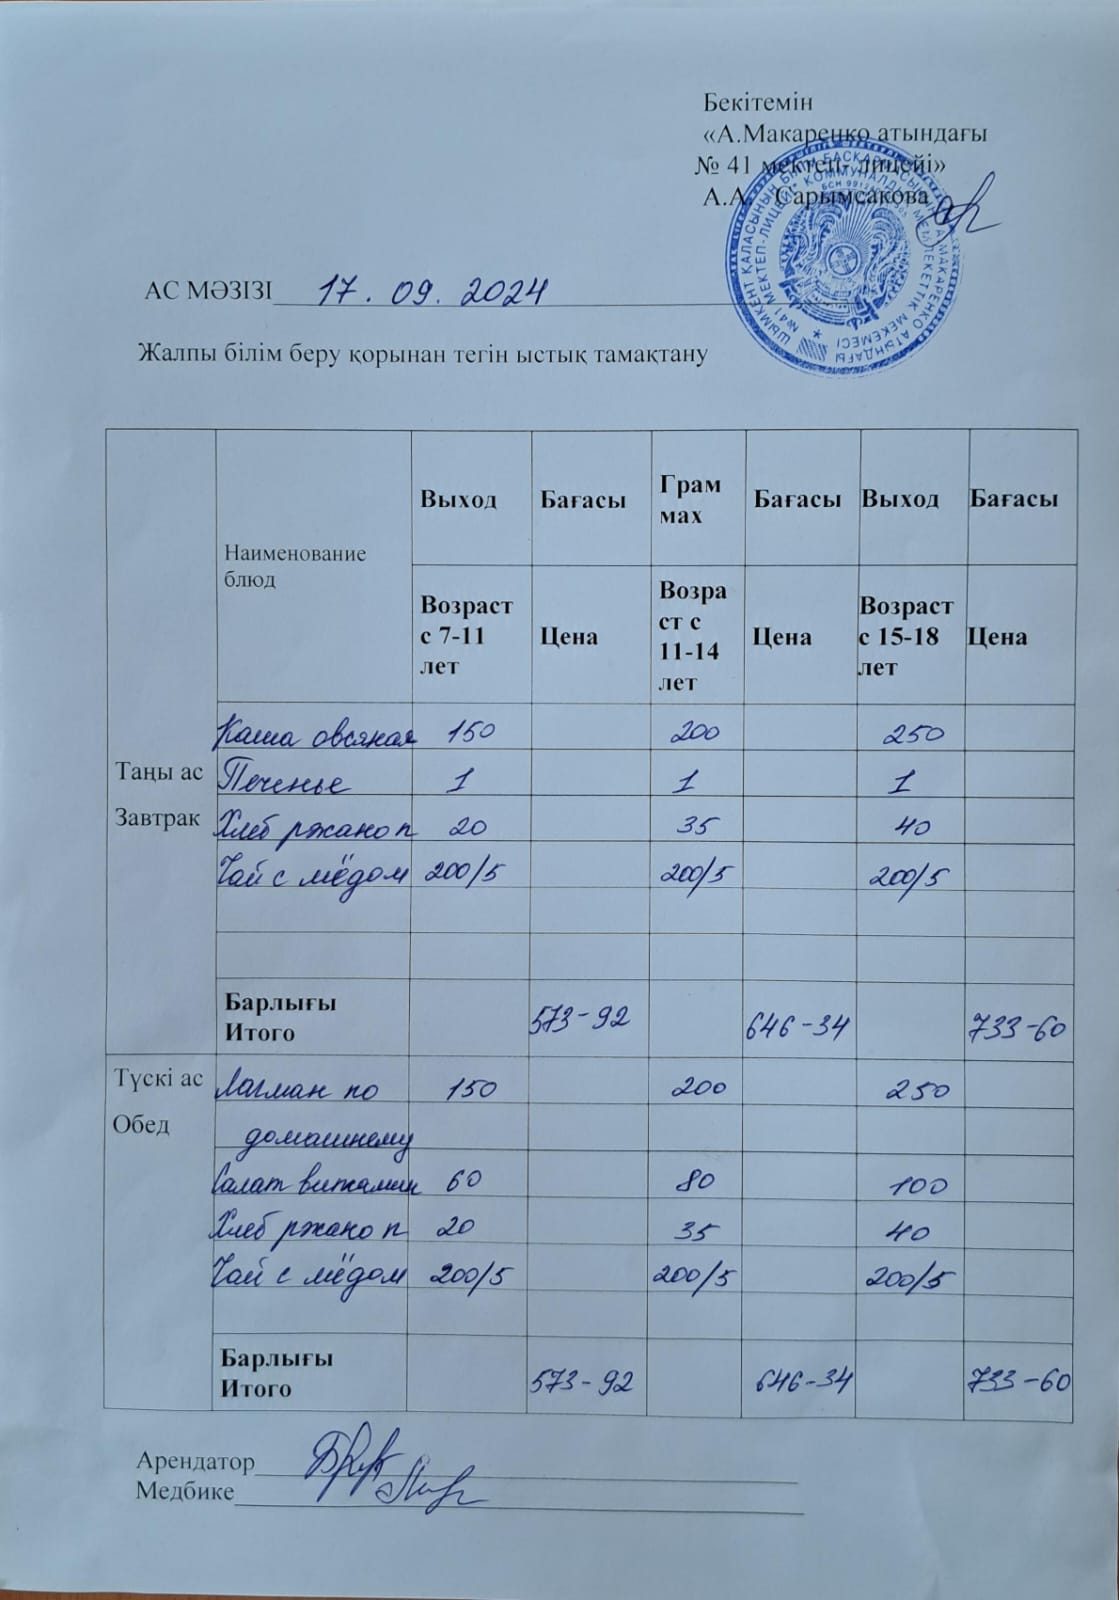 Бекітемін
«А.Макаренко атындағы
№ 41 мектеп- лицейі»
А.А. Сарымсакова
АС МӘЗІЗІ 17.09.2024
Жалпы білім беру қорынан тегін ыстық тамақтану
Наименование блюд
Выход Бағасы Грам мах Бағасы Выход Бағасы
Возраст с 7-11 лет Цена Возра ст с 11-14 лет Цена Возраст с 15-18 лет Цена
Таңы ас
Завтрак
Каша овсяная 150 200 250
Печенье 1 1 1
Хлеб ржано п 20 35 40
Чай с мёдом 200/5 200/5 200/5
Барлығы
Итого 573-92 646-34 733-60
Түскі ас
Обед
Лагман по 150 200 250
домашнему
Салат витамин 60 80 100
Хлеб ржано п 20 35 40
Чай с мёдом 200/5 200/5 200/5
Барлығы
Итого 573-92 646-34 733-60
Арендатор
Медбике